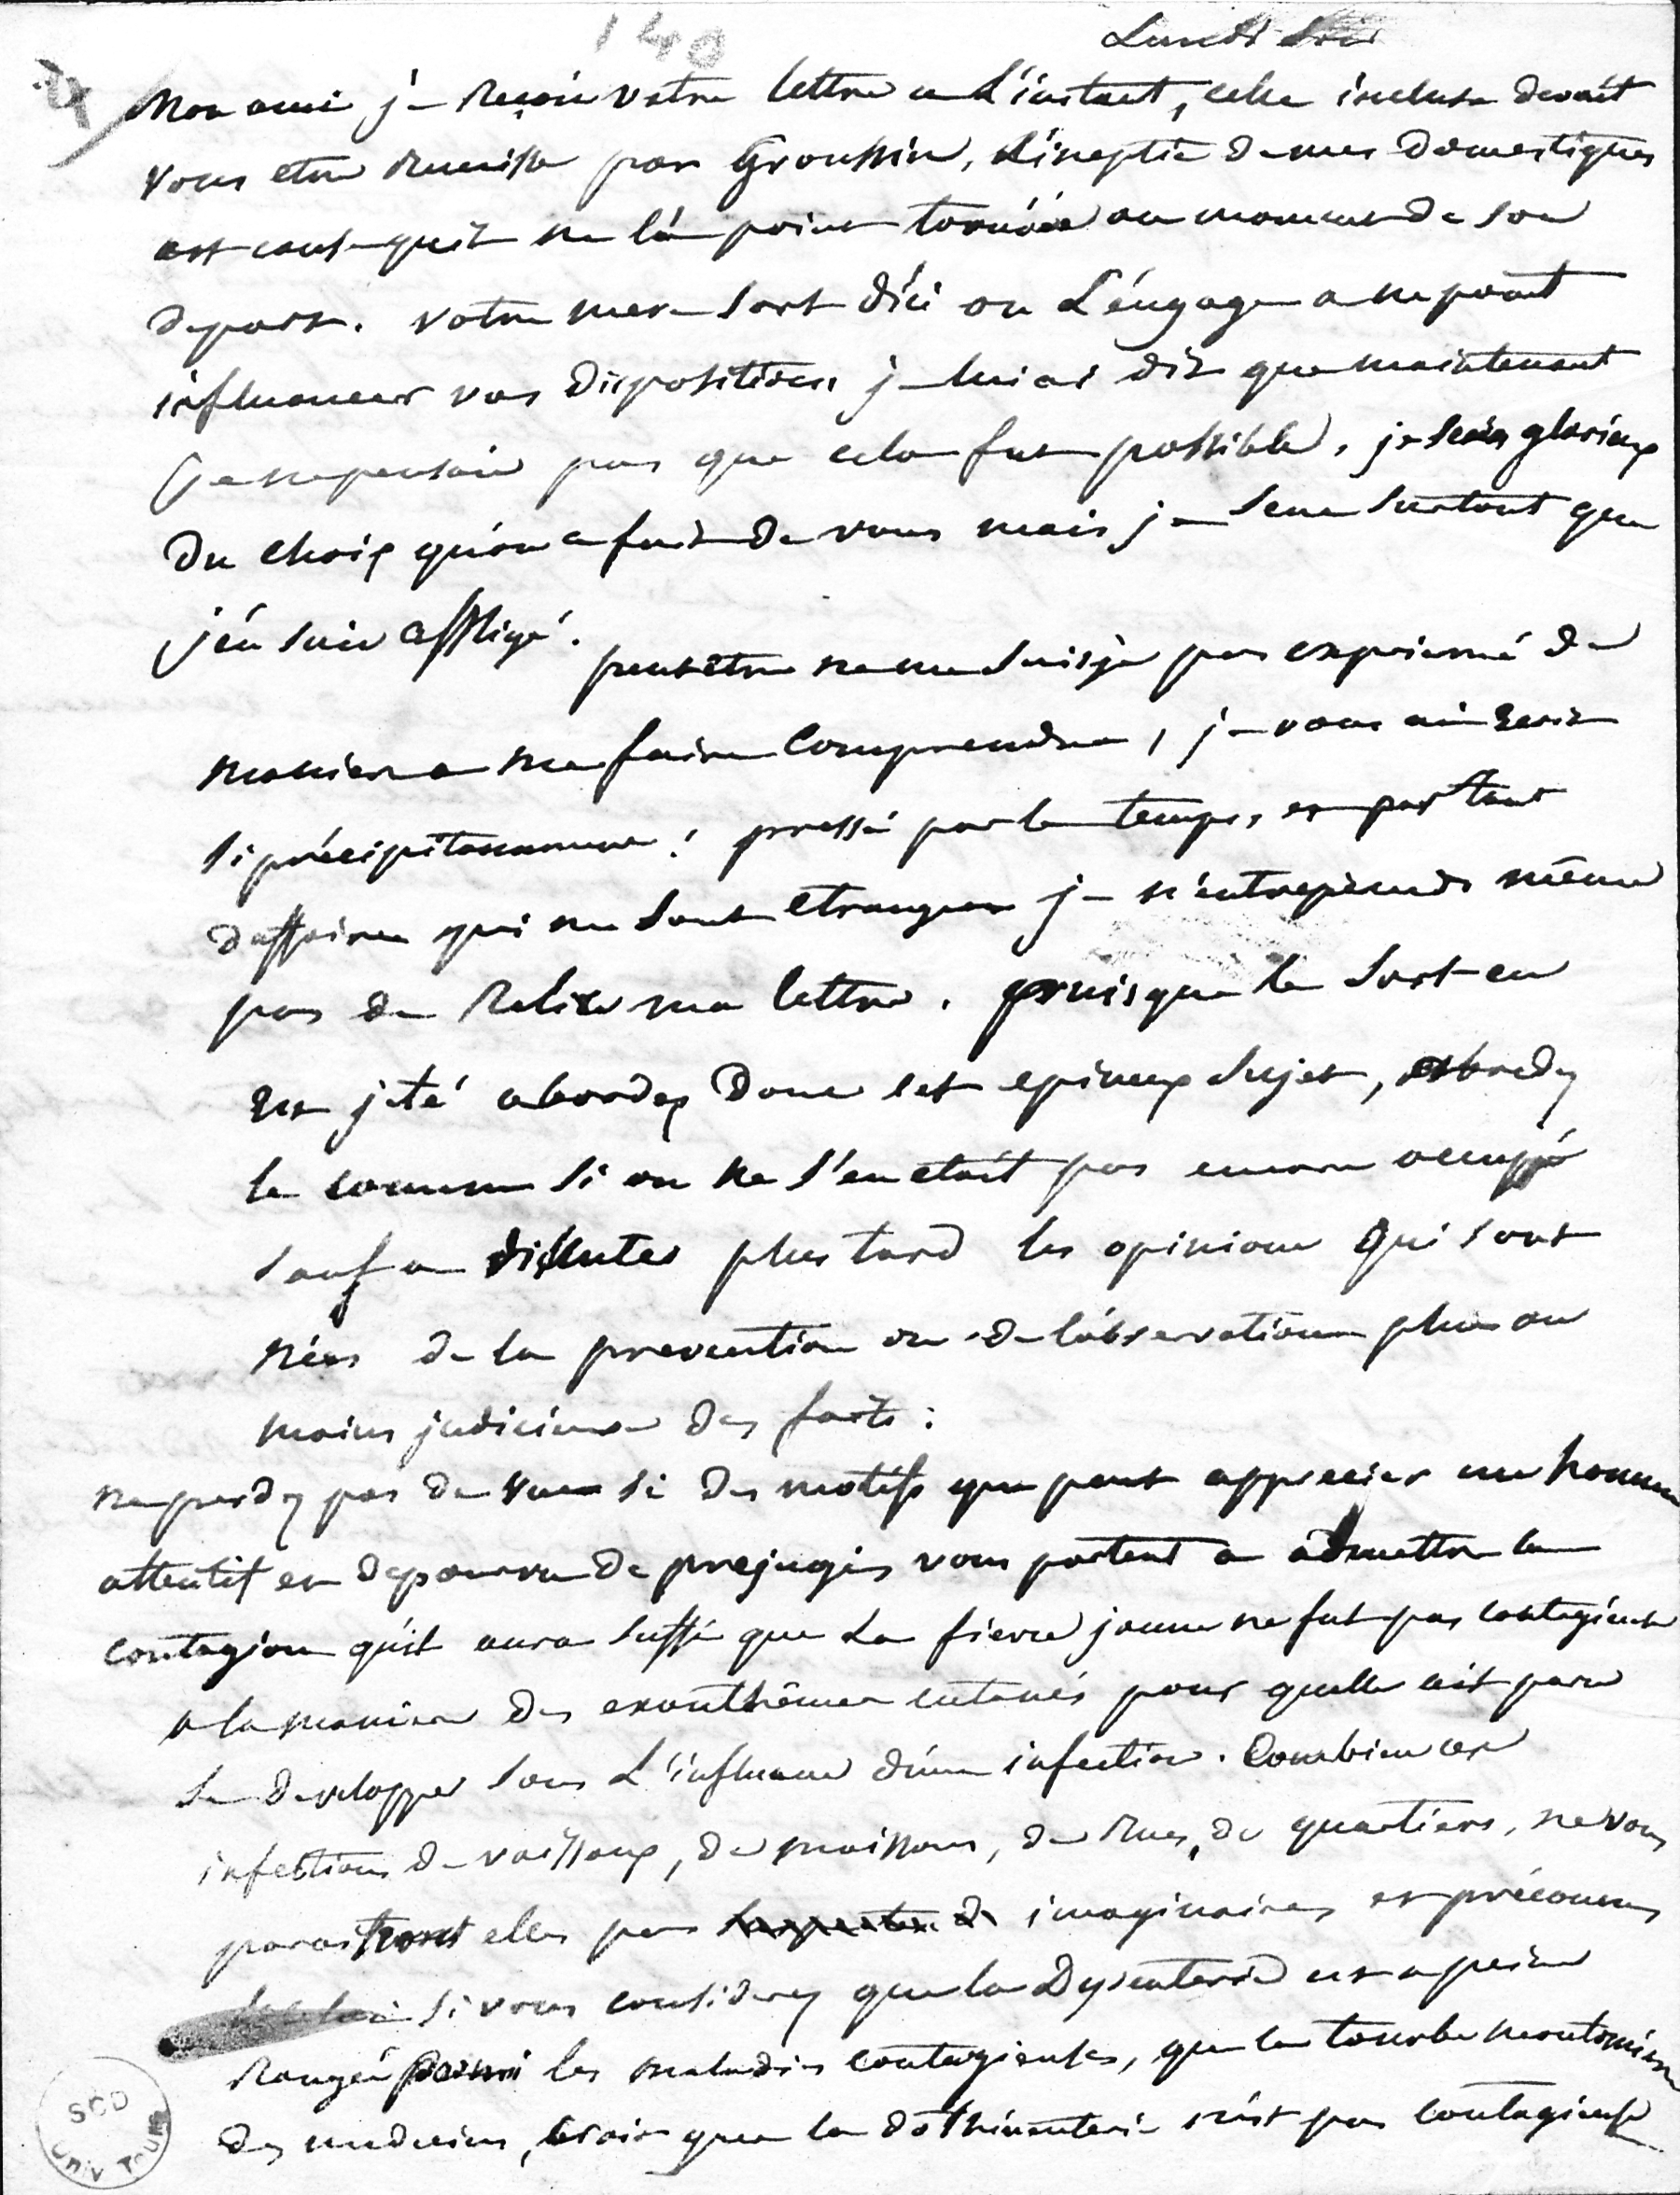 140
Lundi soir
4
Mon ami je reçois votre lettre a l'instant, celle incluse devait
vous etre remise par Groussin, l'ineptie de mes domestiques
est cause quil ne la point trouvée au moment de son
depart. votre mere sort d'ici on l'éngage a ne point
influencer vos dispositions je lui ai dit que maintenant
je ne pensais pas que cela fut possible. je suis glorieux
du choix qu'on a fait de vous mais je sens surtout que
j'en suis affligé.
peut etre ne me suis je pas exprimé de
maniere a me faire comprendre, je vous ai ecrit
si précipitamment! pressé par le temps, et par tant
daffaires qui me sont etrangeres je n'entreprends même
pas de relire ma lettre. puisque le sort en
est jeté abordez donc cet epineux sujet, abordez
le comme si on ne s'en etait pas encore occuppé
sauf a discuter plus tard les opinions qui sont
nées de la prevention ou de l'observation plus ou
moins judicieuse des faits:
ne perdez pas de vue si des motifs que peut apprecier un homme
attentif et depourvu de prejugés vous portent a admettre la
contagion qu'il aura suffi que la fievre jaune ne fut pas contagieuse
a la maniere des exanthêmes cutanés pour quelle ait paru
se developper sous l'influence d'une infection. Combien ces
infections de vaisseaux, de maisons, de rues, de quartiers, ne vous
paraitront elles pas imaginaires et préconçues
si vous considerez que la dysenterie est a peine
rangée parmi les maladies contagieuses, que la tourbe moutonniere
des medecins, croit que la dothinenterie n'est pas contagieuse
SCD
Univ Tours